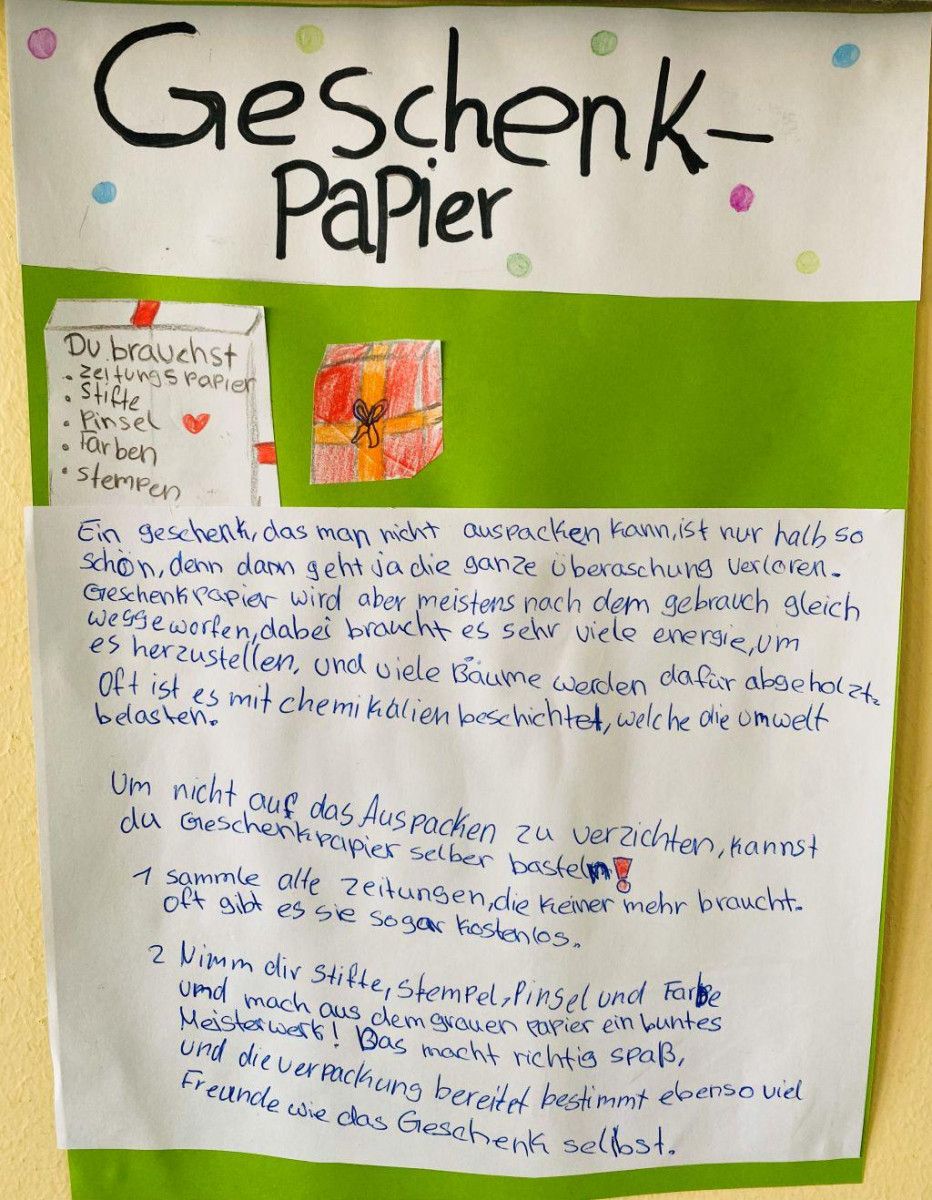 Geschenk-
Papier
Du brauchst
• Zeitungspapier
• Stifte
• Pinsel
• Farben
• stempen
Ein geschenk, das man nicht auspacken kann, ist nur halb so
schön, denn dann geht ja die ganze überaschung verloren.
Geschenkpapier wird aber meistens nach dem gebrauch gleich
weggeworfen, dabei braucht es sehr viele energie, um
es herzustellen, und viele Bäume werden dafür abgeholzt.
Oft ist es mit chemikalien beschichtet, welche die umwelt
belasten.
Um nicht auf das Auspacken zu verzichten, kannst
du Geschenkpapier selber basteln!
1 sammle alte zeitungen, die keiner mehr braucht.
Oft gibt es sie sogar kostenlos.
2 Nimm dir stifte, stempel, Pinsel und Farbe
und mach aus dem grauen papier ein buntes
Meisterwerk! Das macht richtig spaß,
und die verpackung bereitet bestimmt ebenso viel
Freunde wie das Geschenk selbst.